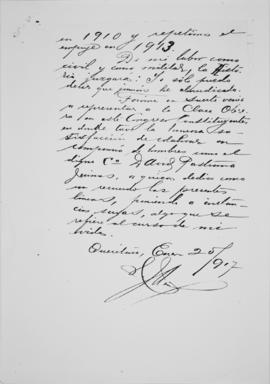 en 1910 y repetimos el
empuje en 1913.
De mi labor como
civil y como militar, la Histo-
ria juzgará: Yo solo puedo
decir que jamás he claudicado.
Tocóme en suerte venir
a representar a la Clase Obre-
ra en este Congreso Constituyente,
en donde tuve la inmensa sa-
tisfacción de colaborar en
compañía de hombres como el
digno Cno. David Pastrana
Jaimes, a quien dedico como
un recuerdo las presentes
líneas, poniendo a instan-
cias suyas, algo que se
refiere al curso de mi
vida.
Querétaro, Enero 25/917